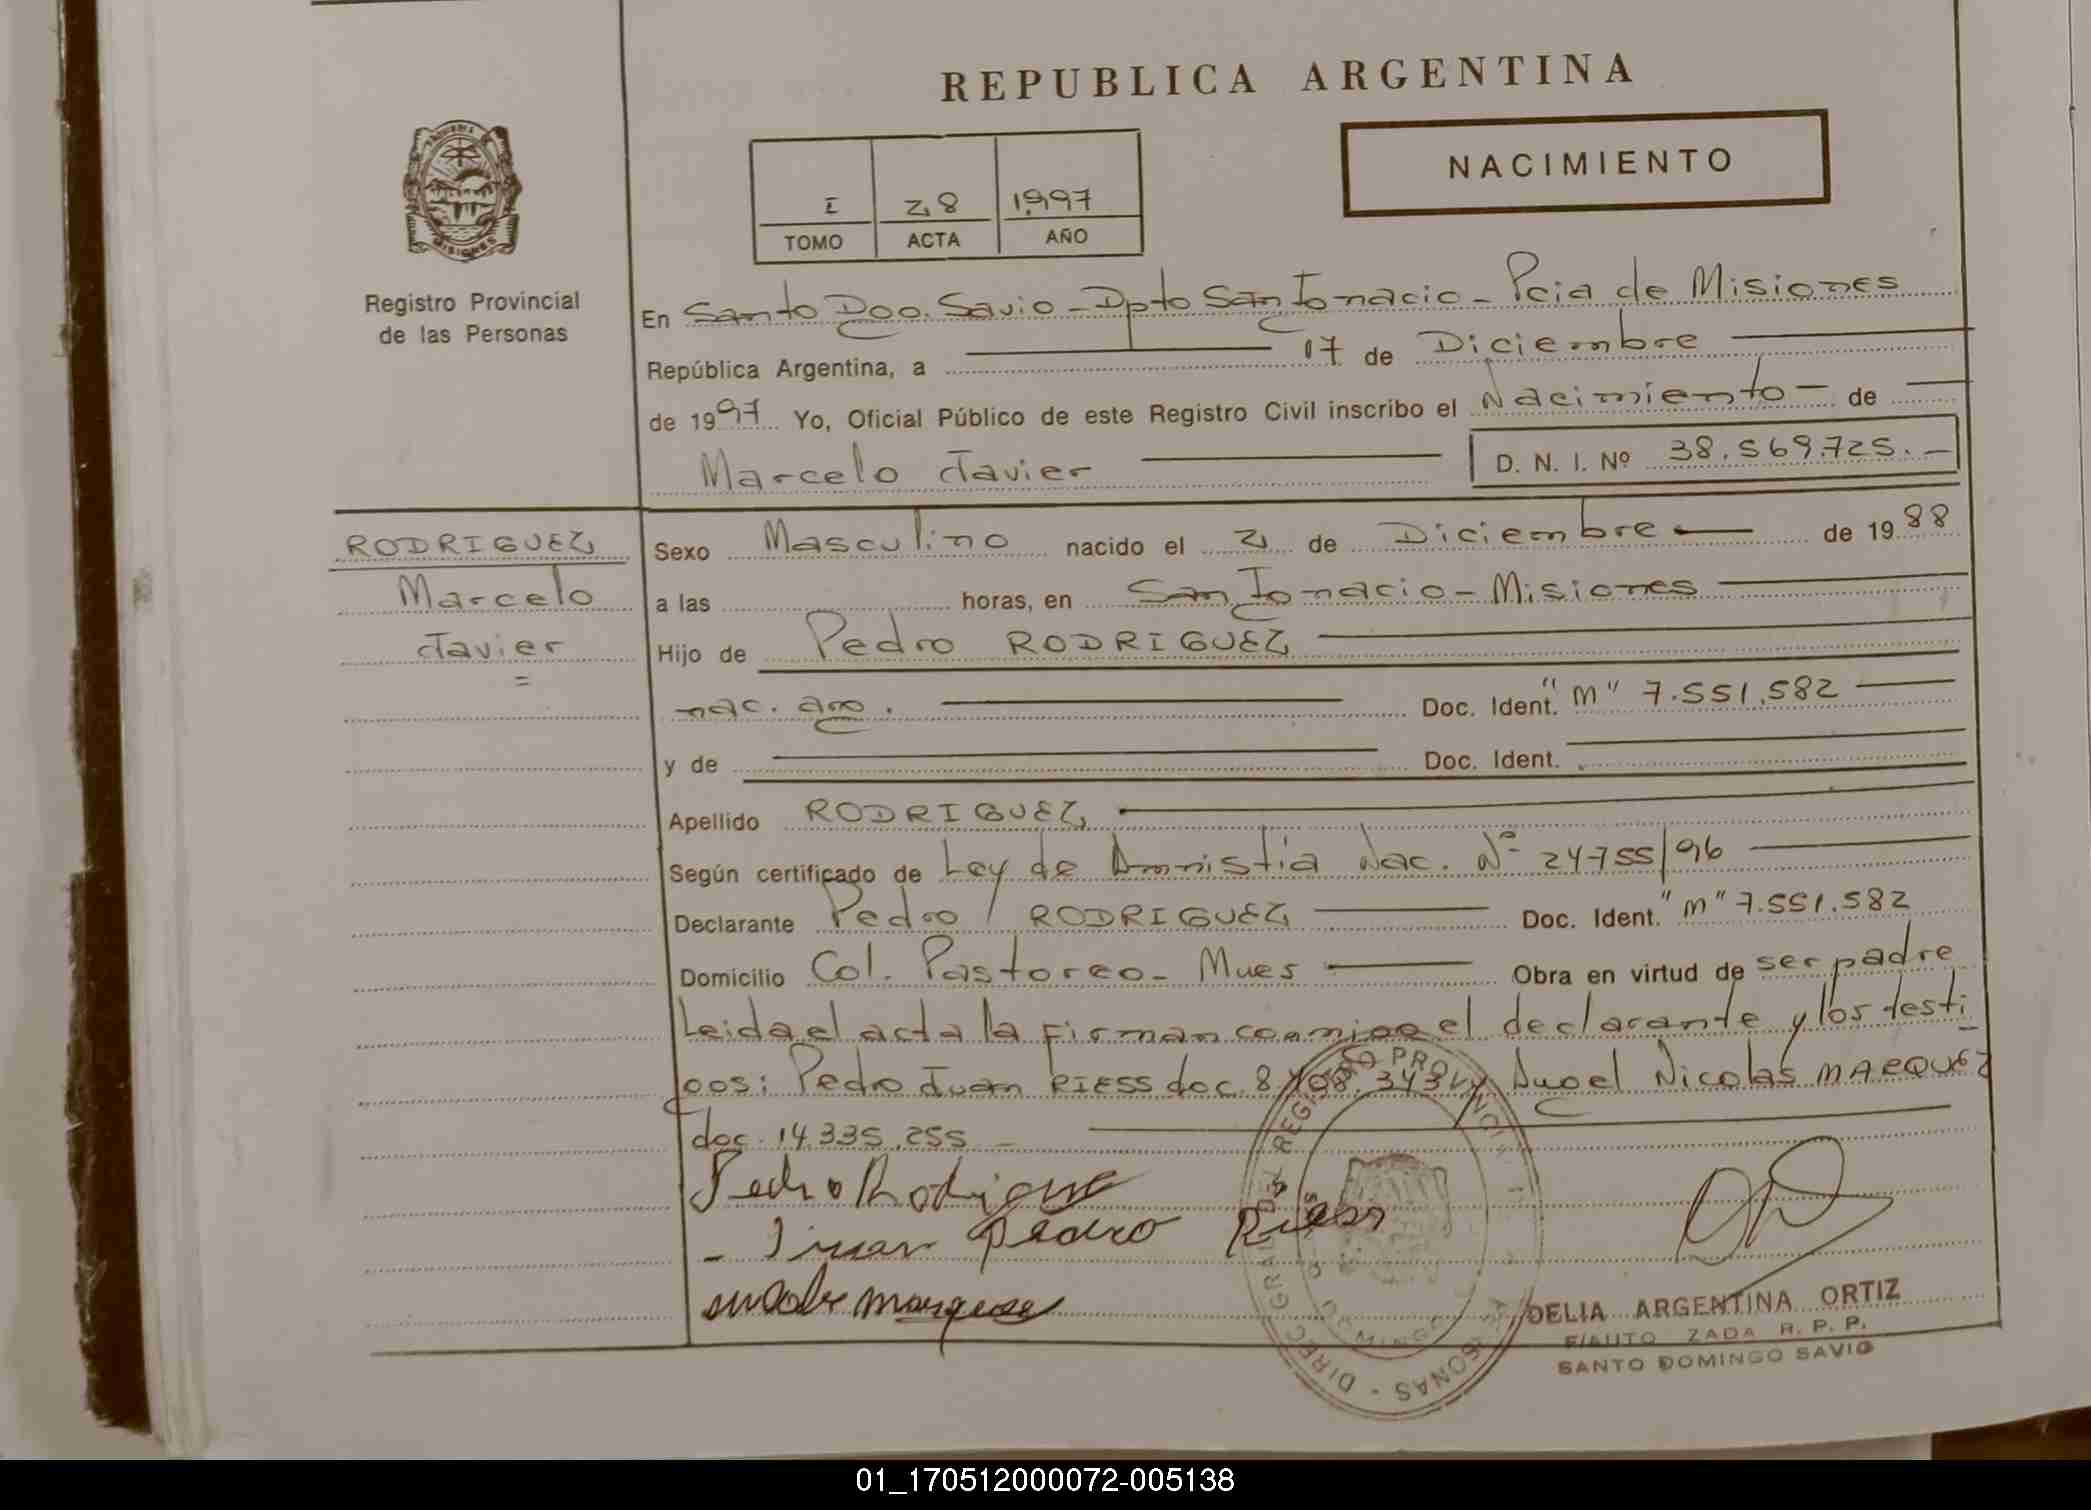 REPUBLICA ARGENTINA
NACIMIENTO
I 28 1997
TOMO ACTA AÑO
MISIONES
Registro Provincial
de las Personas
En Santo Dgo. Savio - Dpto San Ignacio - Pcia de Misiones
República Argentina, a 17 de Diciembre
de 1997 Yo, Oficial Público de este Registro Civil inscribo el Nacimiento - de
Marcelo Javier D. N. I. Nº 38.569.725.-
RODRIGUEZ
Marcelo
Javier
=
Sexo Masculino nacido el 2 de Diciembre de 1988
a las horas, en San Ignacio - Misiones
Hijo de Pedro RODRIGUEZ
nac. arg. Doc. Ident. "M" 7.551.582
y de Doc. Ident.
Apellido RODRIGUEZ
Según certificado de Ley de Amnistia Nac. Nº 24755/96
Declarante Pedro RODRIGUEZ Doc. Ident. "M" 7.551.582
Domicilio Col. Pastoreo - Mnes Obra en virtud de ser padre
Leida el acta la firman conmigo el declarante y los testi
gos: Pedro Juan RIESS doc. 8.408.343 y Angel Nicolas MARQUEZ
doc. 14.335.255 -
Pedro Rodrigue
- Juan Pedro Riess
marquese
DELIA ARGENTINA ORTIZ
R. P. P.
SANTO DOMINGO SAVIO
01_170512000072-005138